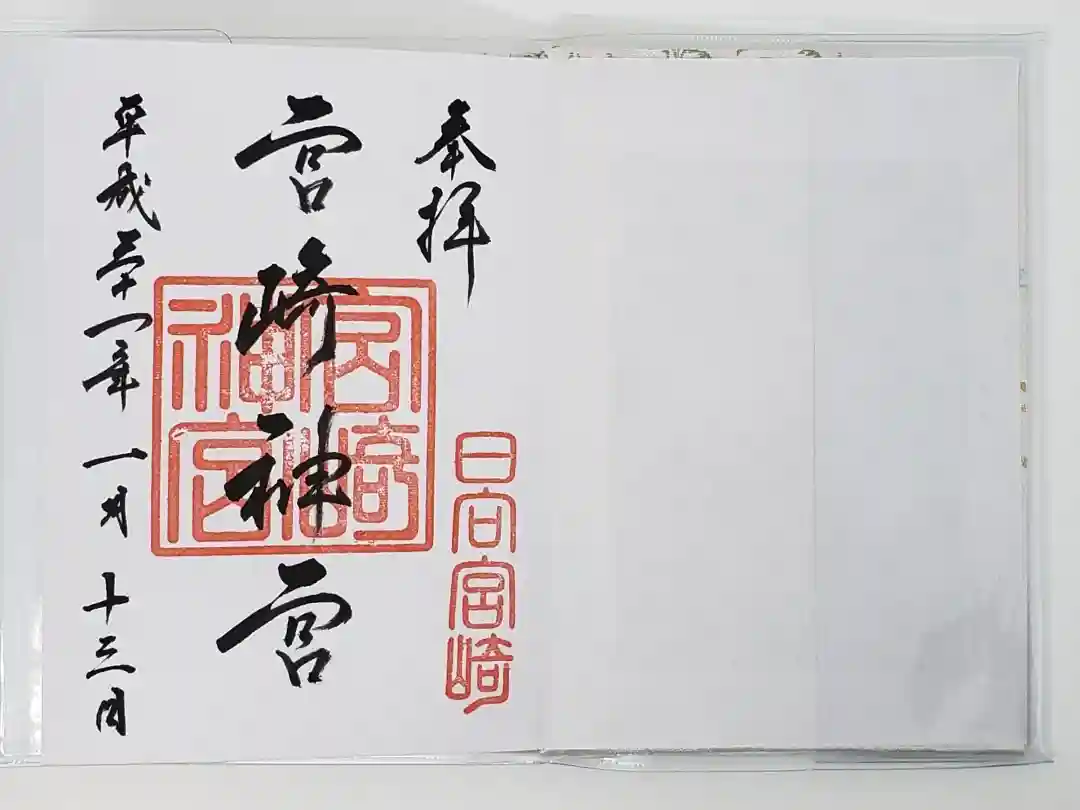 奉拝
日向宮崎
宮崎神宮
宮崎
神宮
平成三十一年一月十三日